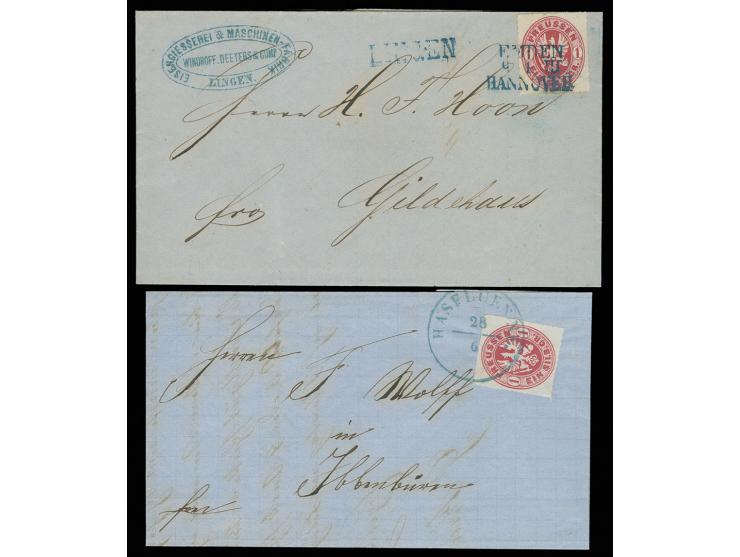 EISENGIESSEREI & MASCHINEN-FABRIK
WINDHOFF, DEETERS & COMP
LINGEN.
LINGEN
EMDEN
HANNOVER
PREUSSEN
1
Herrn H. F. Hoon
fro Gildehaus
HASELUENNE
28
6
PREUSSEN
EIN SILBERGR.
1
Herren F Wolff
in
Ibbenbüren